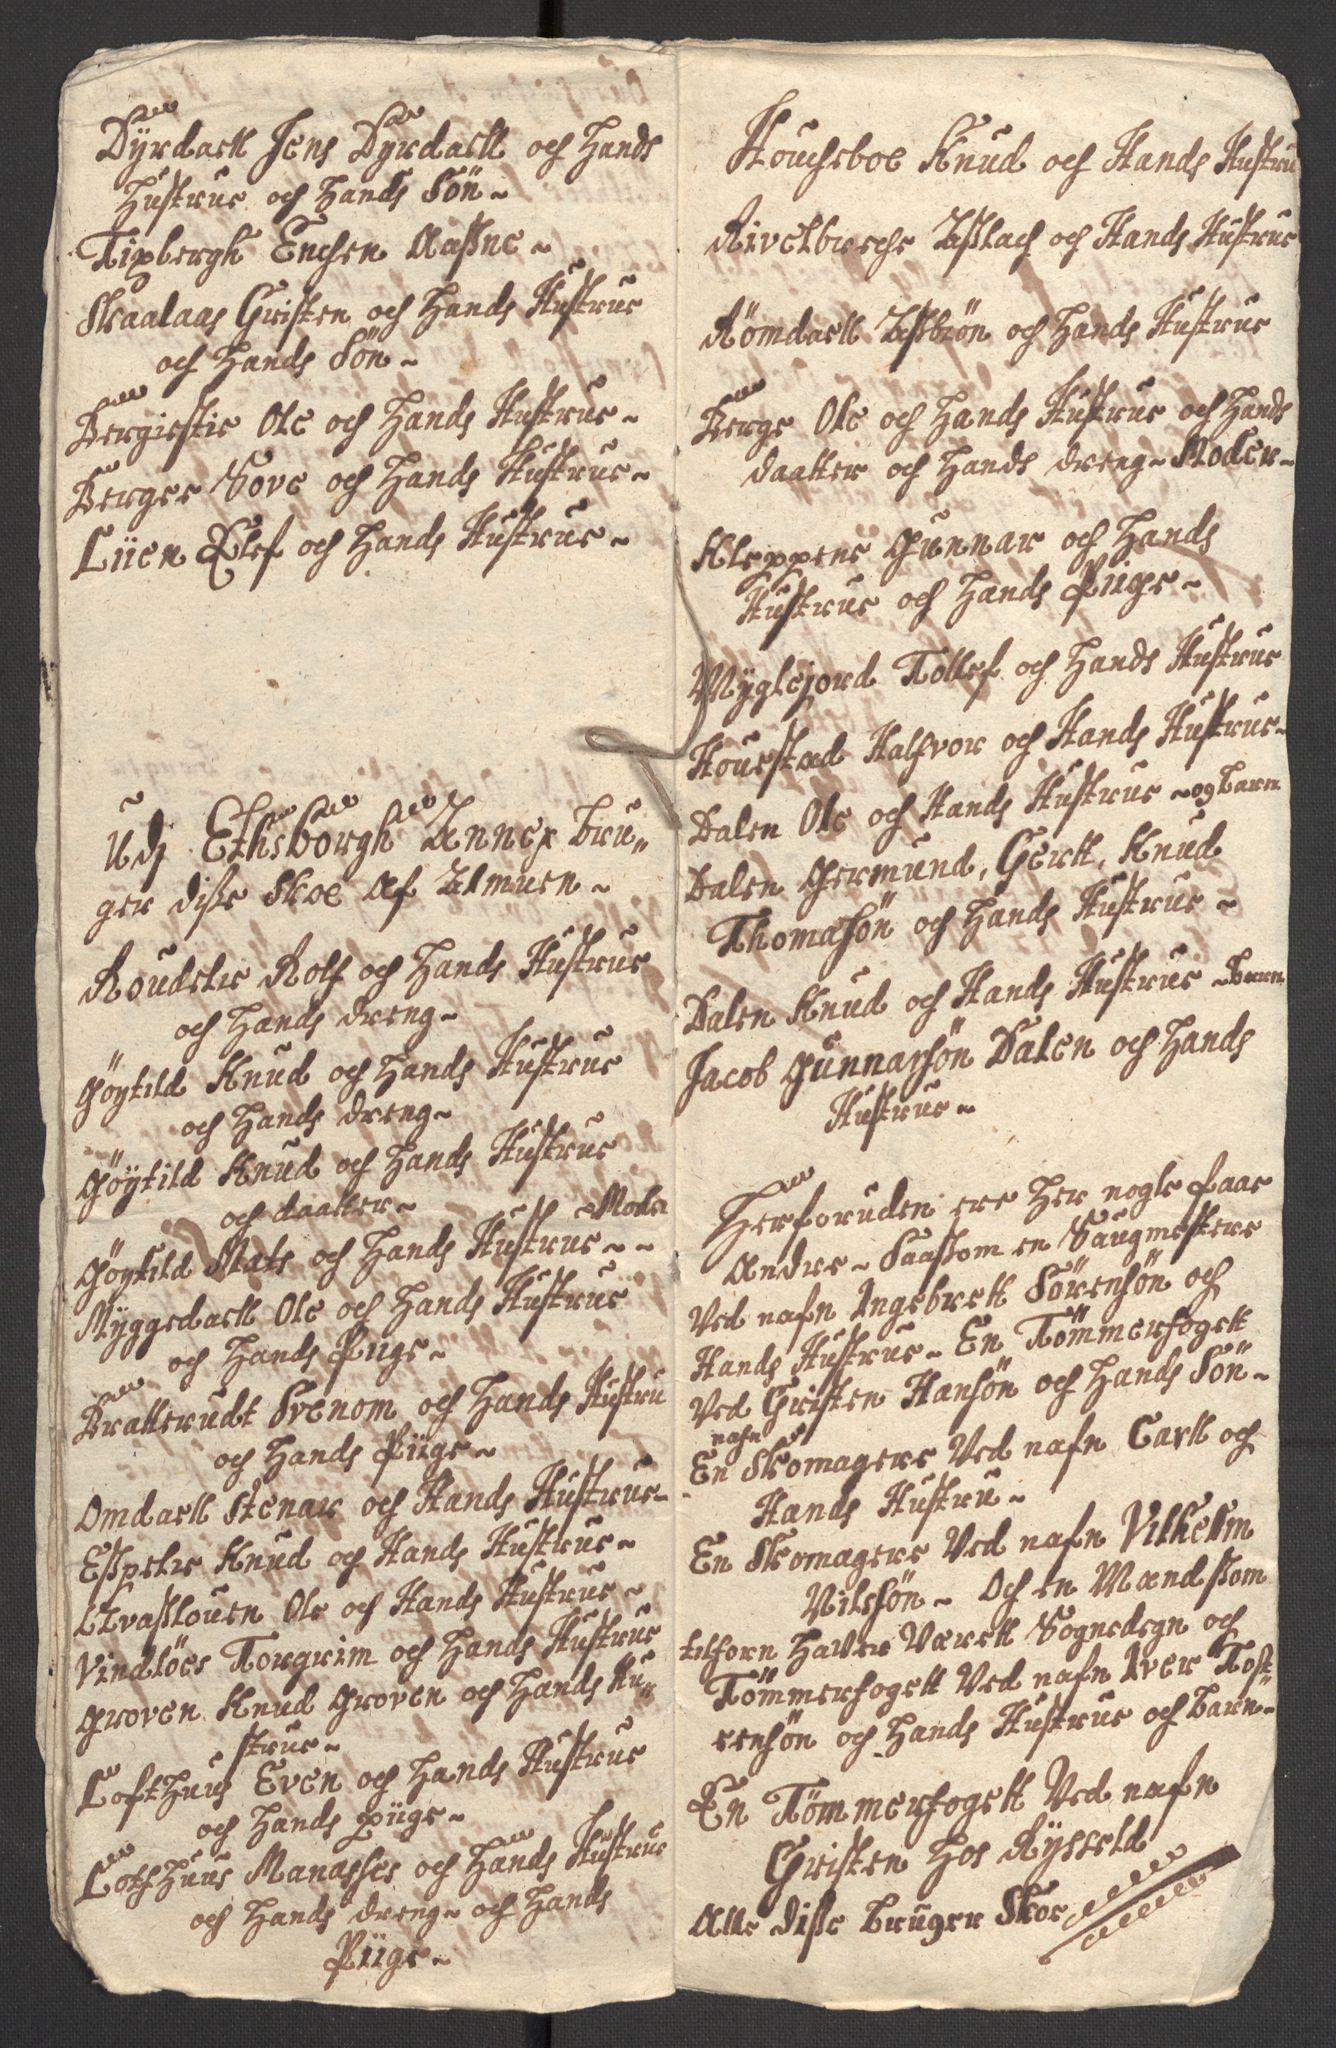 Dÿrdaell Jens Dÿrdaell och Hands
Hustrue och Hands Sön~
Tixbergh Enchen Aaßne~
Skaalaas Christen och Hands Hustrue
och Hands Sön~
Bergistie Ole och Hands Hustrue~
Berger Tove och Hands Hustrue~
Liien Elef och Hands Hustrue~
Udj Ethsborgh Annex bru„
ger diße Skoe Af Almuen~
Roudelie Rolf och Hands Hustrue
och Hands dreng~
Göytild Knud och Hands Hustrue
och Hands dreng~
Göytild Knud och Hands Hustrue
och daatter~
~Moder
Göytild Mats och Hands Hustrue~~
Myggedaell Ole och Hands Hustrue
och Hands Piige~
Bratterudt Svenom och Hands Hustru
och Hands Piige~
Omdaell Stenar och Hands Hustrue~
Eßpelie Knud och Hands Hustrue~
Qvaßlouen Ole och Hands Hustrue~
Vindlöes Torgrim och Hands Hustrue
Groven Knud Groven och Hands Hu„
strue~
Lofthuus Even och Hands Hustrue
och Hands piige~
Lofthuus Manasses och Hands Hustrue
och Hands dreng~ och Hands
Piige~
Houcheboe Knud och Hands Hustrue
Rivelbreche Aßlach och Hands Hustrue
Römdaell Aßbiön och Hands Hustrue
Berge Ole och Hands Hustrue och Hands
daatter och Hands dreng~ Moder~
Kleppene Gunnar och Hands
Hustrue och Hands Piige~
Myglejord Tollef och Hands Hustrue
Houestad Halfvor och Hands Hustrue~
Dalen Ole och Hands Hustrue ~og barn
Dalen Germund, Gertt, Knud
Thomasön och Hands Hustrue~
Dalen Knud och Hands Hustrue ~Barn
Jacob Gunnarsön Dalen och Hands
Hustrue~
Herforuden ere Her nogle faae
Andre~ Saaßom en Saugmestere
Ved nafn Ingebrett Sörensön och
Hands Hustrue~ En Tömmerfogett
Ved Christen Hansön och Hands Sön~
nafn
En Skomagere Ved nafn Carll och
Hands Hustru~
En Skomagere Ved nafn Vilhelm
Nilsön~ Och en Mand ßom
tilforn Haver Værett Sognedegn och
Tömmerfogett Ved nafn Iver Tost„
ensön och Hands Hustrue och barn~
En Tömmerfogett Ved nafn
Christen Hos Rysseld
Alle diße bruger Skoe